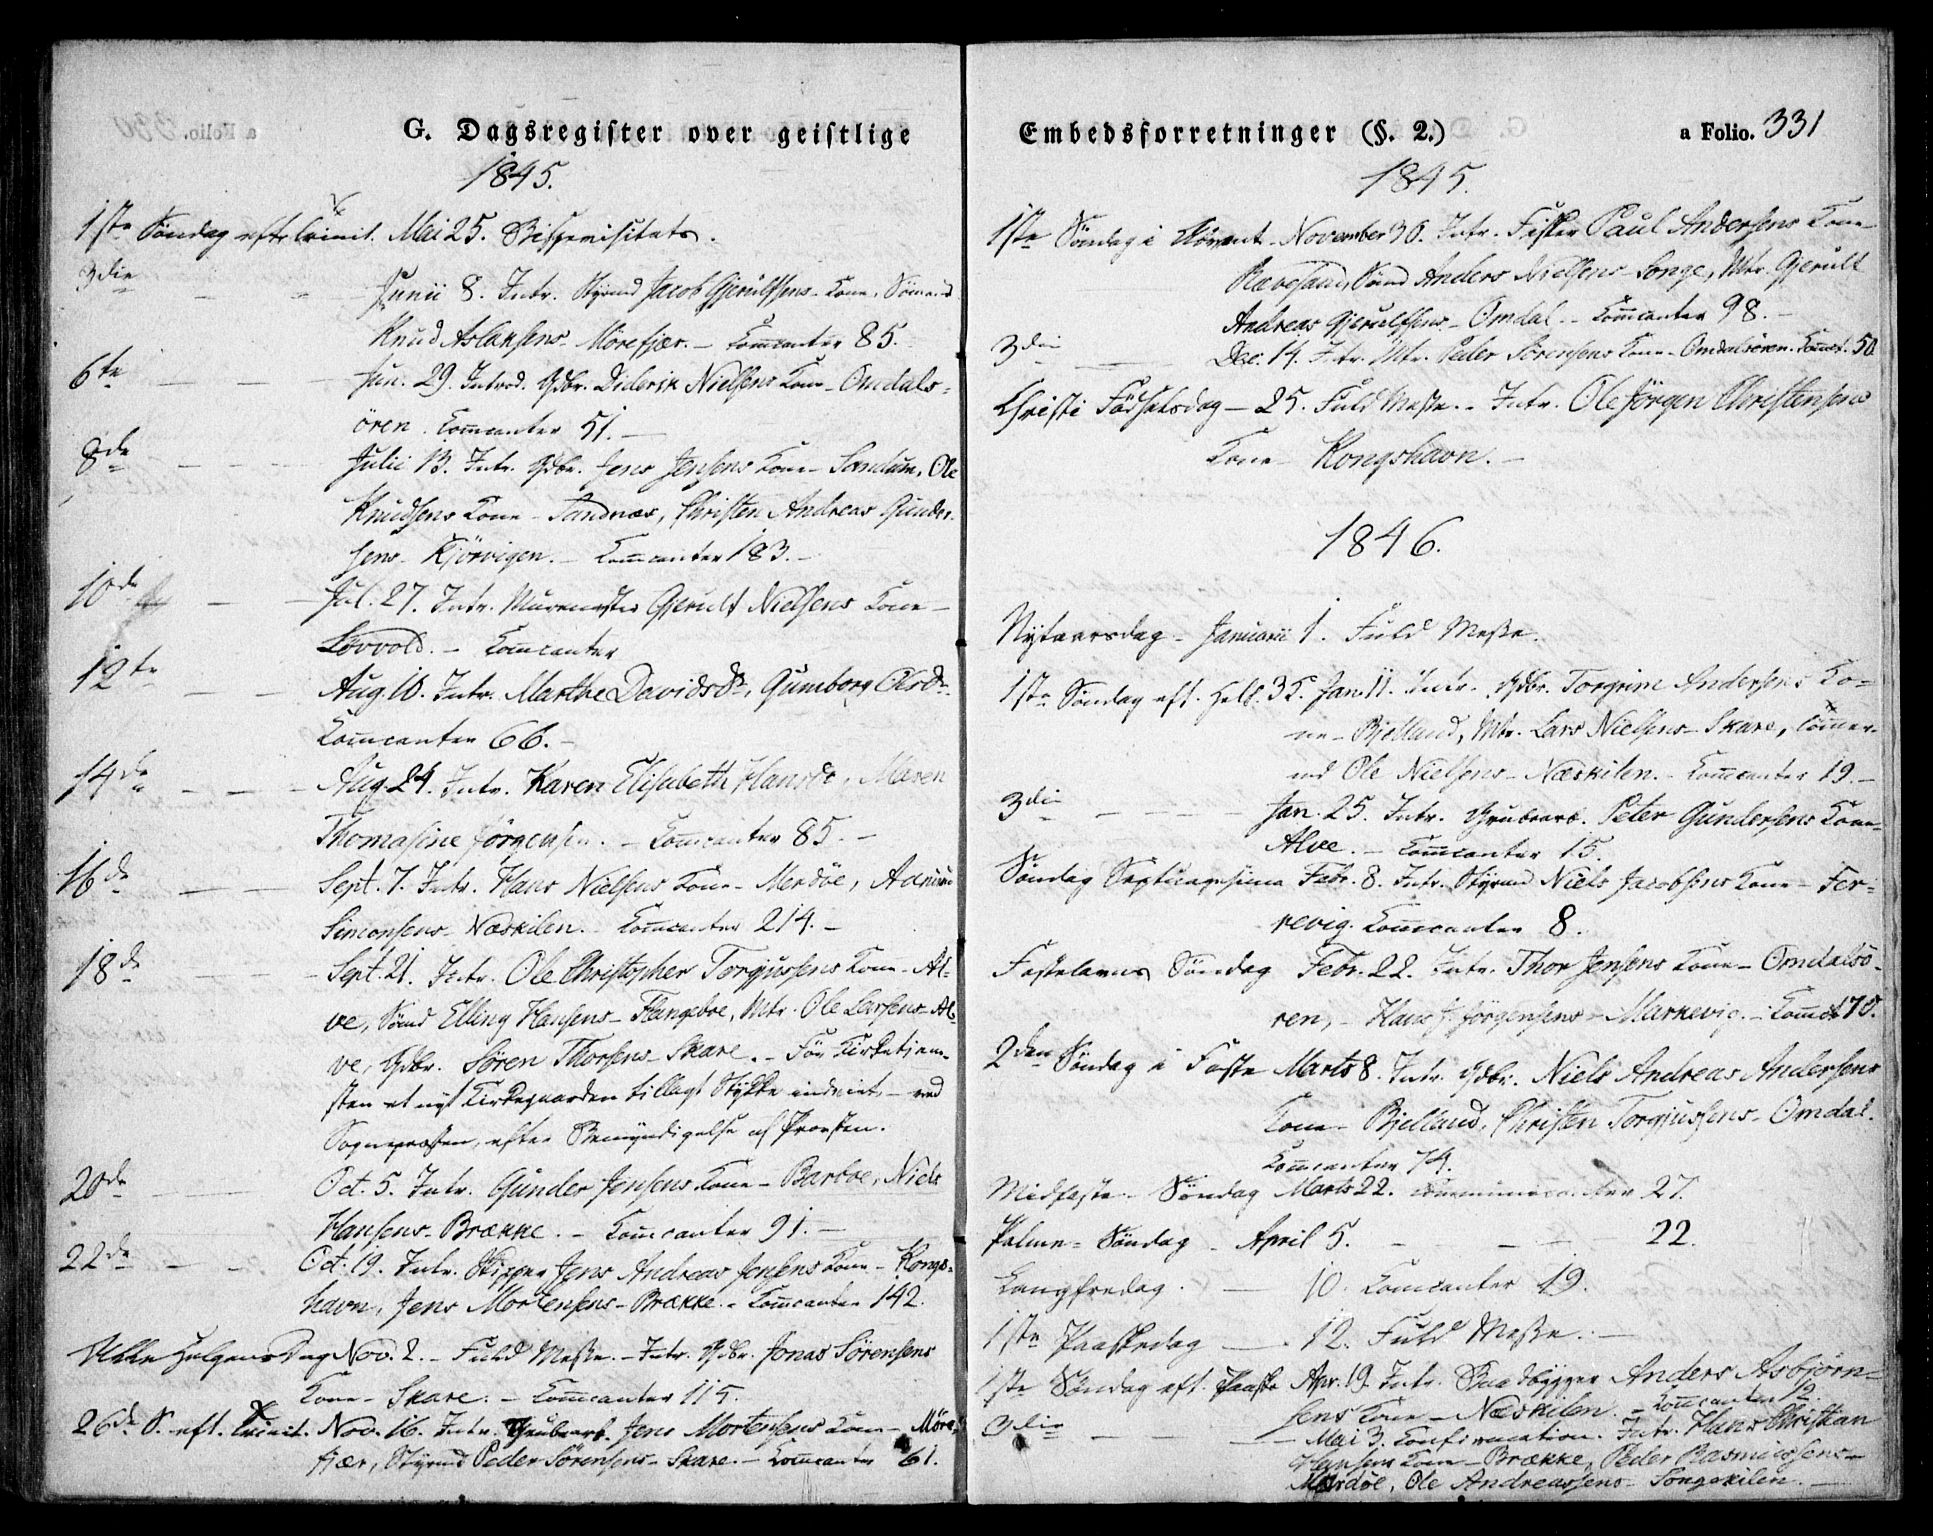 G. Dagsregister over geistlige
1845.
1ste Søndag efter Trinit. Mai 25. Bispevisitats.
3die - - - Junii 8. Intr. Styrmd Jacob Gjerulfsens Kone, Sømd
Knud Aslaksens - Mörefjær. - Comcanter 85. -
6te - - - Jun. 29. Introd. Gdbr. Diderik Nielsens Kone - Omdals-
ören. Comcanter 51. -
8de - - - Julii 13. Intr. Gdbr. Jens Jensens Kone - Sandum, Ole
Knudsens Kone - Sandnæs, Christen Andreas Gunder-
sens - Kjörvigen. - Comcanter 183. -
10de - - - Jul. 27. Intr. Muurmester Gjerulf Nielsens Kone -
Lövvold. - Comcanter
12te - - - Aug. 10. Intr. Marthe Davidsdr, Gumborg Olsdr.
Comcanter 66. -
14de - - - Aug. 24. Intr. Karen Elisabeth Hansdr, Maren
Thomasine Jörgensen. - Comcanter 85. -
16de - - Sept. 7. Intr. Hans Nielsens Kone - Merdöe,
Simonsens - Næskilen. Comcanter 214. -
18de - - - Sept. 21. Intr. Ole Christopher Torgjussens Kone - Al-
ve, Sömd Elling Hansens - Flangeboe, Mtr. Ole Larsens - Al-
ve, Gdbr. Sören Thorsens - Skare. - För Kirketjene-
sten et nyt Kirkegaarden tillagt Stykke indviet - ved
Sognepræsten, efter Bemyndigelse af Provsten.
20de - - Oct. 5. Intr. Gunder Jensens Kone - Barboe, Niels
Hansens - Brække. - Comcanter 91. -
22de - - Oct. 19. Intr. Skipper Jens Andreas Jensens Kone - Kongs-
havn, Jens Mortensens - Brække. - Comcanter 142.
Alle Helgens Dag Nov. 2. - Fuld Messe. - Intr. Gdbr. Jonas Sörensens
Kone - Skare. - Comcanter 115.
26de S. eft. Trinit. Nov. 16. Intr. Grubearb. Jens Mortensens Kone - Möre-
fjær, Styrmd Peder Sörensens - Skare. - Comcanter 61.
Embedsforretninger (§. 2.)
a Folio. 331
1845.
1ste Söndag i Advent - November 30. Intr. Fisker Paul Andersens Kone -
Ravesand, Sömd Anders Nielsens - Songe, Mtr. Gjerult
Andreas Gjerulfsens - Omdal. - Comcanter 98. -
3die - - Dec. 14. Intr. Mtr. Peder Sörensens Kone - Omdalsören. Comct. 50.
Christi Födselsdag - 25. Fuld Messe. - Intr. Ole Jörgen Christensens
Kone - Kongshavn. -
1846.
Nytaarsdag - Januarii 1. Fuld Messe.
1ste Söndag eft. Hell. 3 K. Jan. 11. Intr. Gdbr. Torgrim Andersens Ko-
ne - Bjelland, Mtr. Lars Nielsens - Skare, Tömmer-
md Ole Nielsens - Næskilen. - Comcanter 19. -
3die - - - Jan. 25. Intr. Grubearb. Peter Gundersens Kone -
Alve. - Comcanter 15.
Söndag Septuagesima Febr. 8. Intr. Styrmd Niels Jacobsens Kone - Fer-
revig. Comcanter 8.
Fastelavns Söndag Febr. 22. Intr. Thor Jensens Kone - Omdalsö-
ren, - Hans J. Jörgensens - Markevig. - Comct 70.
2den Söndag i Faste Marts 8. Intr. Gdbr. Niels Andreas Andersens
Kone - Bjelland, Christen Torgjussens - Omdal.
Comcanter 74.
Midfaste - Söndag Marts 22. communicanter 27.
Palme-Söndag - April 5. - - - 22.
Langfredag. - 10. Comcanter 19.
1ste Paaskedag - . 12. Fuld Messe. -
1ste Söndag eft. Paaske Apr. 19. Intr. Baadbygger Anders Asbjörn-
sens Kone - Næskilen. - Comcanter 12.
3die - - - Mai 3. Confirmation. Intr. Hans Christian
Hansens Kone - Brække, Peder Rasmussens -
Merdöe, Ole Andreassens - Songekilen. -